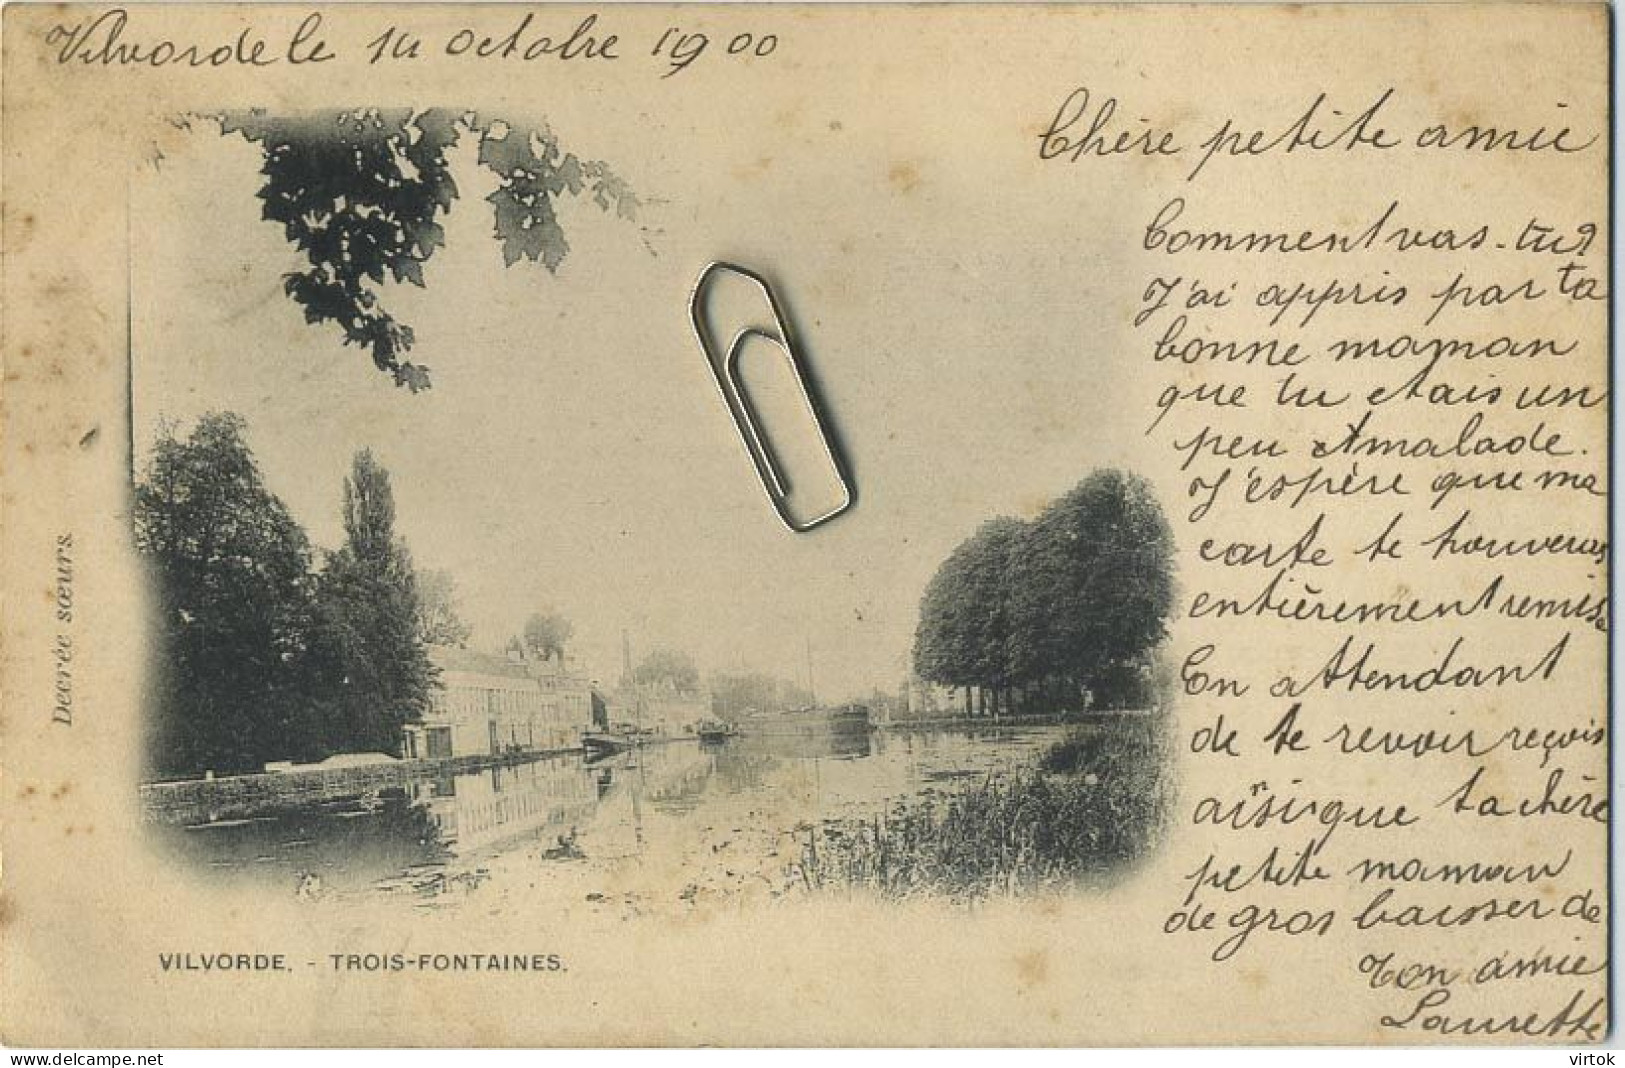 Vilvorde le 14 Octobre 1900
Chère petite amie
Comment vas-tu?
J'ai appris par ta
bonne maman
que tu etais un
peu malade.
J'espère que ma
carte te trouveras
entièrement remise
En attendant
de te revoir reçois
aïnsi que ta chère
petite maman
de gros baisser de
Ton amie
Laurette
Decrée sœurs.
VILVORDE. - TROIS-FONTAINES.
delcampe.net
virtok